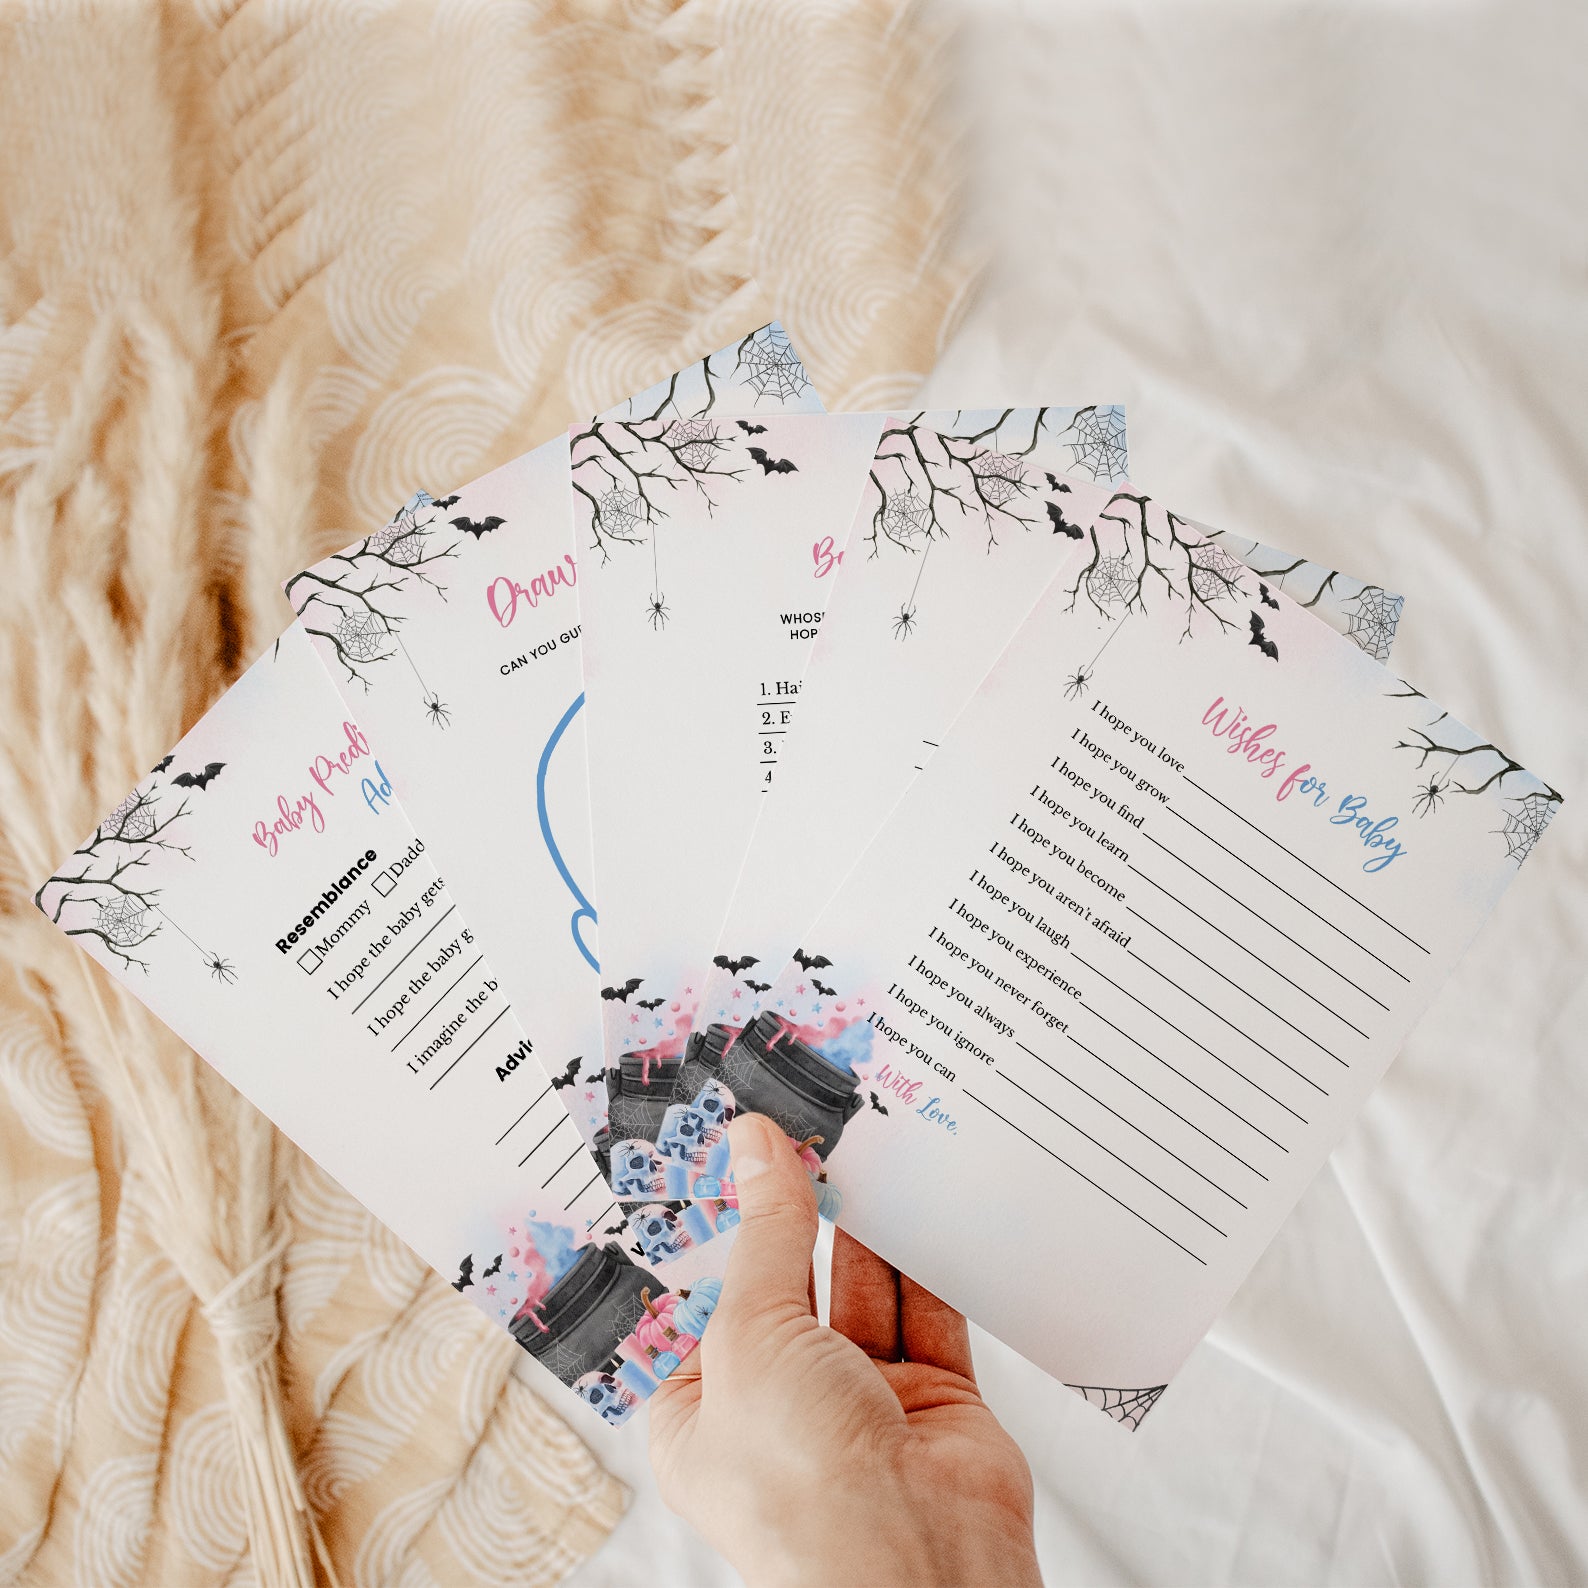 Baby Predi
Ad
Resemblance
Mommy Dadd
I hope the baby gets
I hope the baby g
I imagine the b
Advi
Draw
CAN YOU GU
WHOS
HOP
1. Hai
2. E
3.
4
Wishes for Baby
I hope you love
I hope you grow
I hope you find
I hope you learn
I hope you become
I hope you aren't afraid
I hope you laugh
I hope you experience
I hope you never forget
I hope you always
I hope you ignore
I hope you can
With Love,